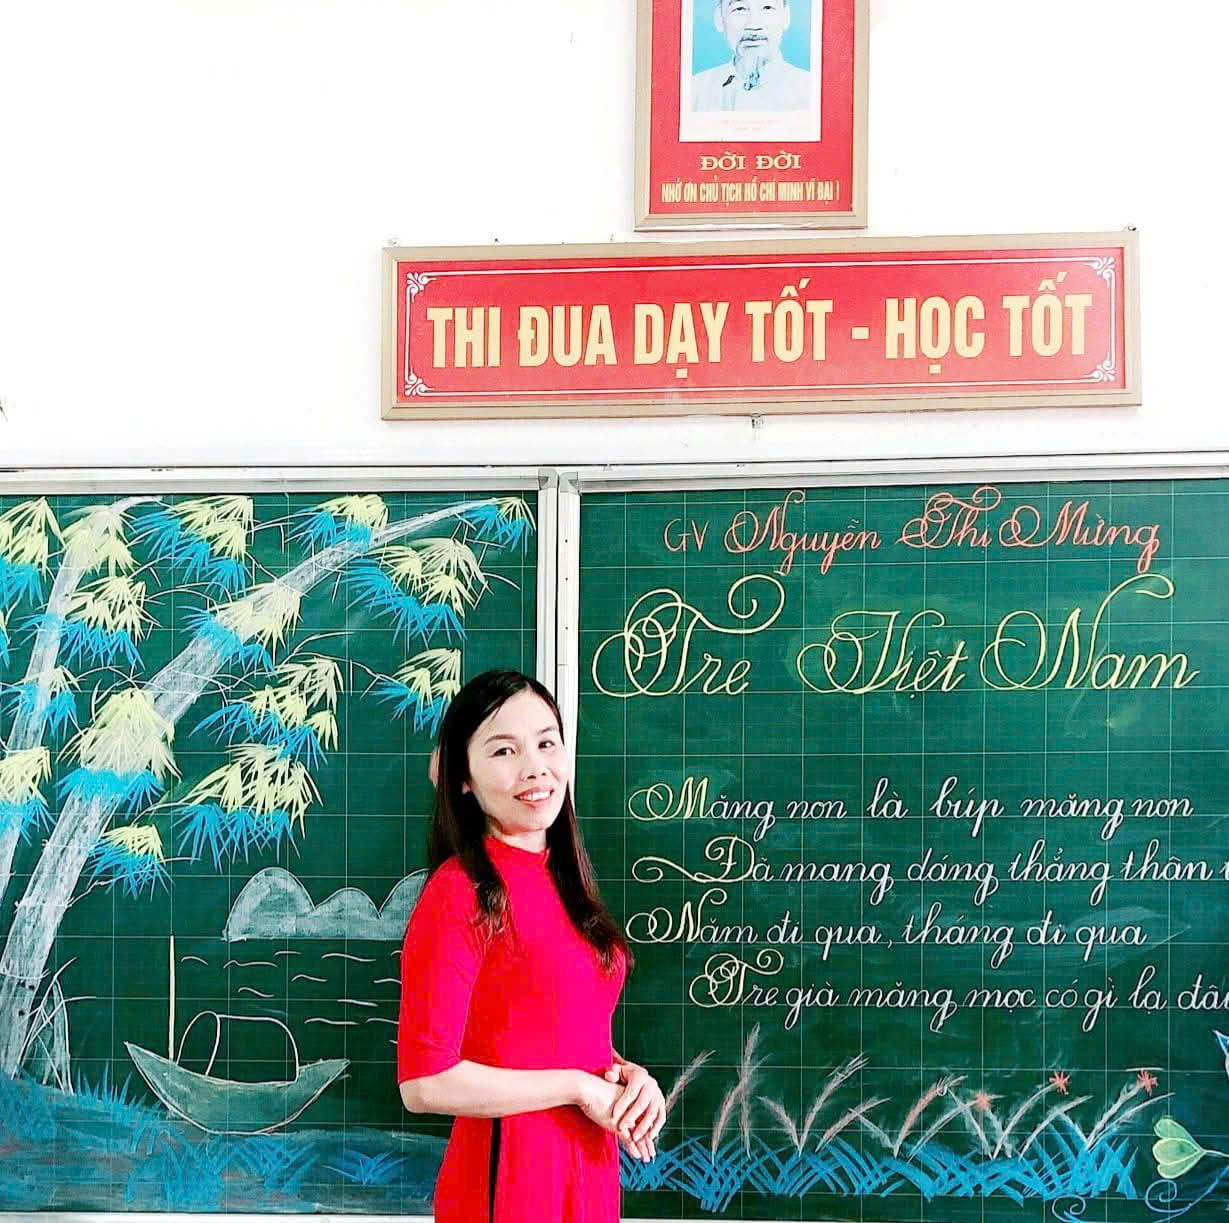 ĐỜI ĐỜI
NHỚ ƠN CHỦ TỊCH HỒ CHÍ MINH VĨ ĐẠI !
THI ĐUA DẠY TỐT - HỌC TỐT
GV Nguyễn Thị Mừng
Tre Việt Nam
Măng non là búp măng non
Đã mang dáng thẳng thân
Năm đi qua, tháng đi qua
Tre già măng mọc có gì lạ